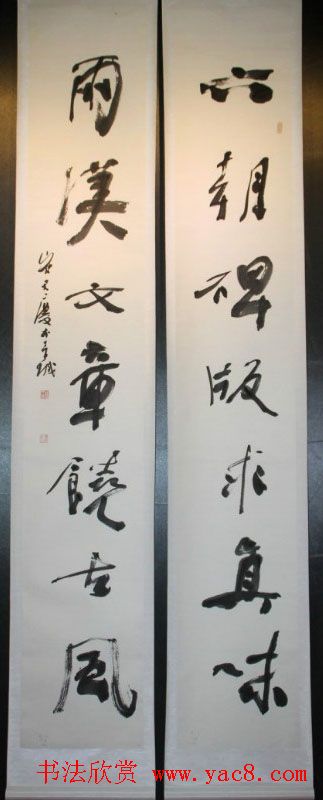 六朝碑版求真味
兩漢文章饒古風
书法欣赏 www.yac8.com